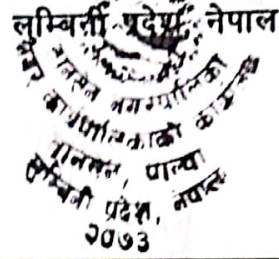 लुम्बिनी प्रदेश, नेपाल
तानसेन नगरपालिका
नगर कार्यपालिकाको कार्यालय
तानसेन, पाल्पा
लुम्बिनी प्रदेश, नेपाल
२०७३